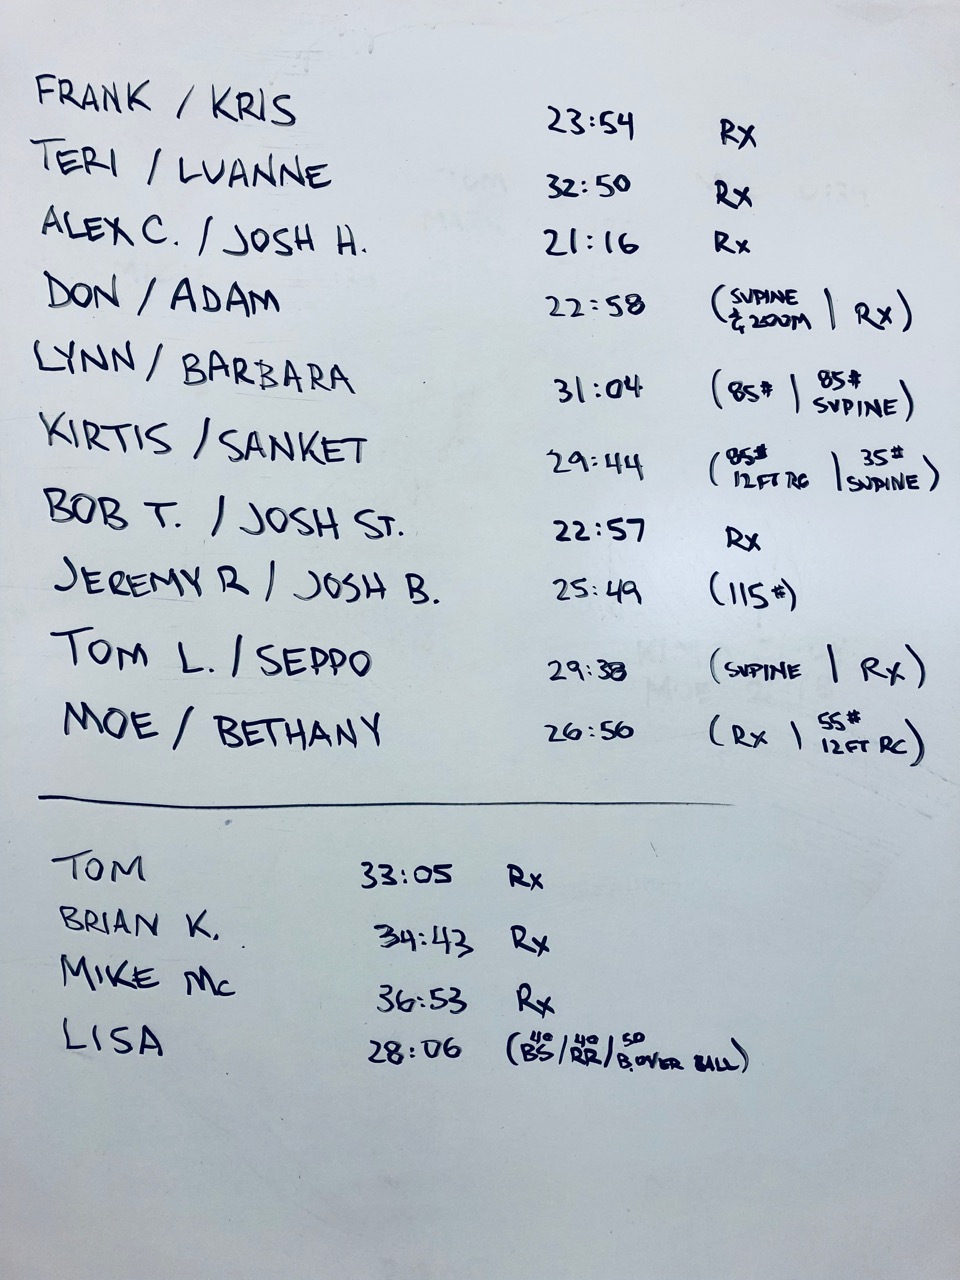 FRANK / KRIS 23:54 Rx
TERI / LUANNE 32:50 Rx
ALEX C. / JOSH H. 21:16 Rx
DON / ADAM 22:58 (SUPINE & 200M | Rx)
LYNN / BARBARA 31:04 (85# | 85# SUPINE)
KIRTIS / SANKET 29:44 (85# 12FT RC | 35# SUPINE)
BOB T. / JOSH ST. 22:57 Rx
JEREMY R / JOSH B. 25:49 (115#)
TOM L. / SEPPO 29:38 (SUPINE | Rx)
MOE / BETHANY 26:56 (Rx | 55# 12FT RC)
TOM 33:05 Rx
BRIAN K. 34:43 Rx
MIKE Mc 36:53 Rx
LISA 28:06 (40 BS / 40 RR / 50 B.OVER BALL)